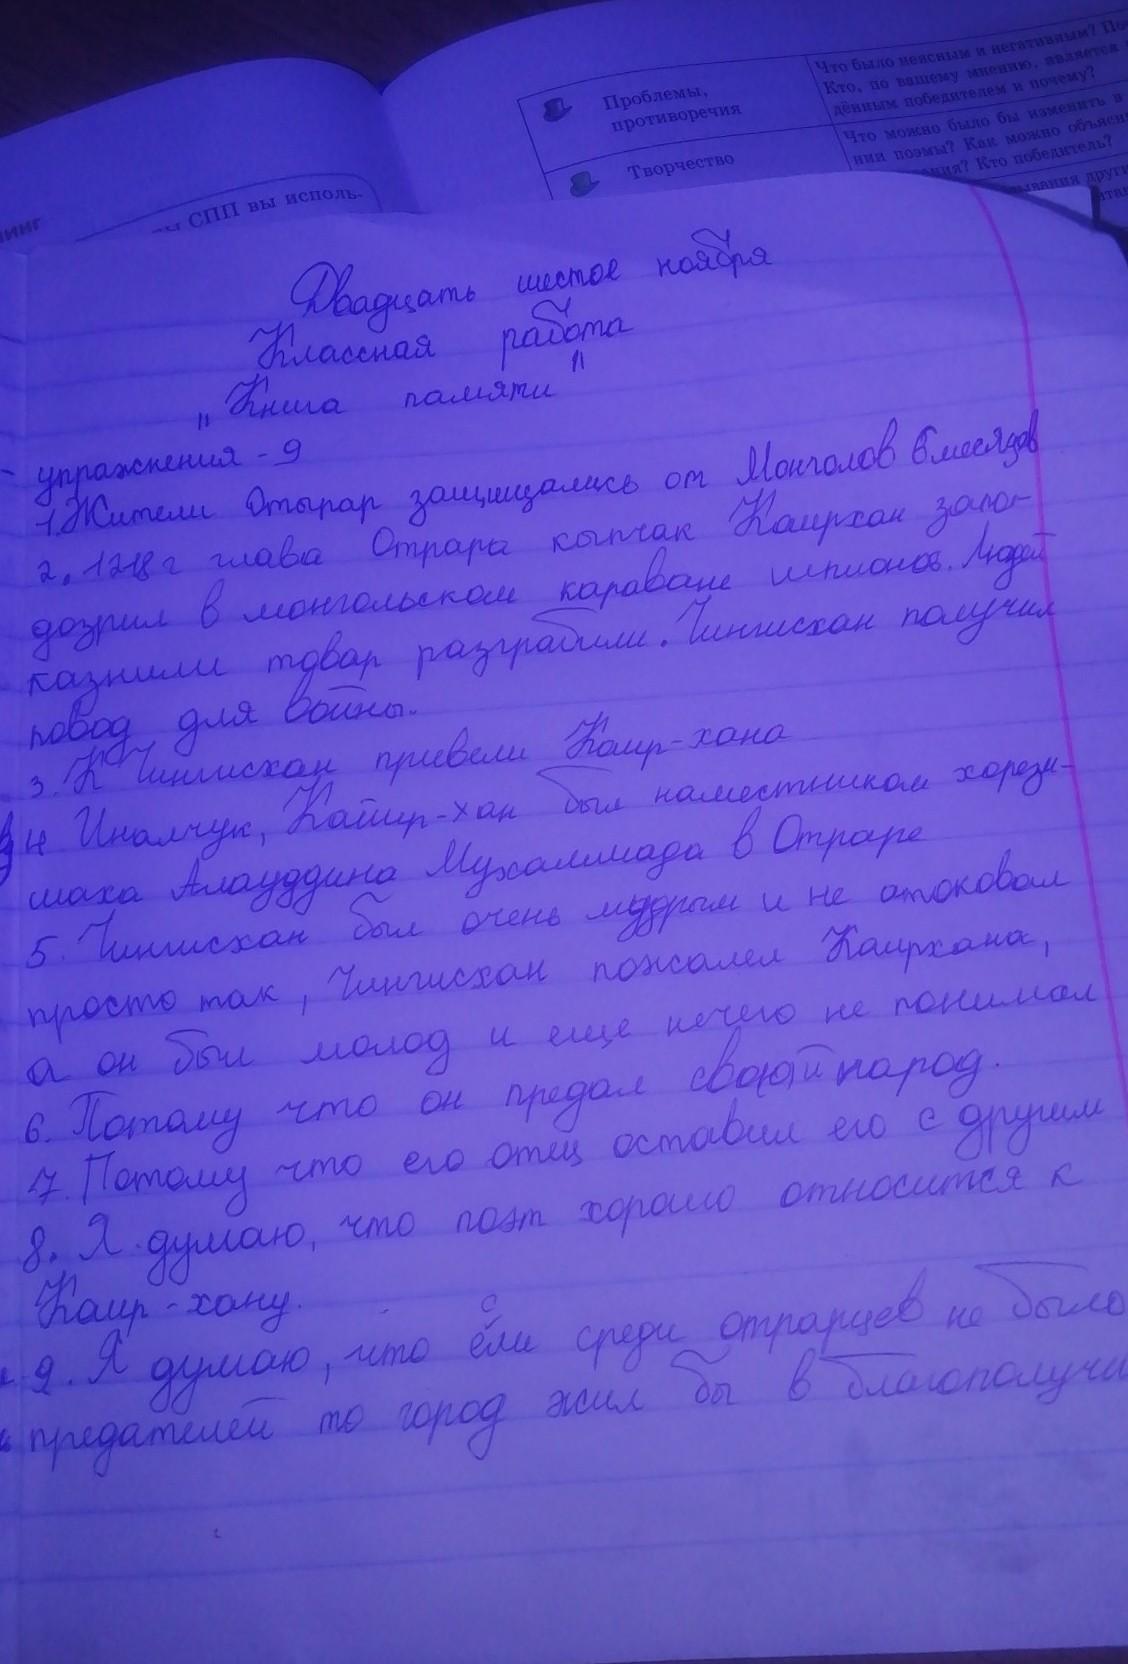 Проблемы,
противоречия
Что было неясным и негативным?
Кто, по вашему мнению, является
дённым победителем и почему?
Творчество
Что можно было бы изменить в
нии поэмы? Как можно объясн
ния? Кто победитель?
СПП вы исполь-
Двадцать шестое ноября
Классная работа
„Книга памяти"
упражнения - 9
1. Жители Отырар защищались от Монголов 6 месяцов
2. 1218 г глава Отрара кыпчак Каирхан запо-
дозрил в монгольском караване шпионов. Людей
казнили товар разграбили. Чингисхан получил
повод для войны.
3. К Чингисхан привели Каир-хана
4 Иналчук, Кайир-хан был наместником хорезм-
шаха Алауддина Мухаммада в Отраре
5. Чингисхан был очень мудрым и не атоковал
просто так, Чингисхан пожалел Каирхана,
а он был молод и еще нечего не понимал
6. Потому что он предал свой народ.
7. Потому что его отец оставил его с другим
8. Я думаю, что поэт хорошо относится к
Каир-хану.
9. Я думаю, что если среди отрарцев не было
предателей то город жил бы в благополучи